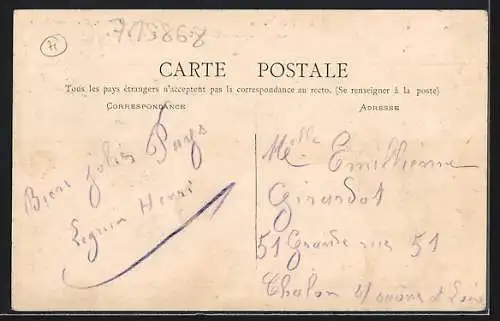 71
715868
CARTE POSTALE
Tous les pays étrangers n'acceptent pas la correspondance au recto. (Se renseigner à la poste)
CORRESPONDANCE
ADRESSE
Bien jolies Pays
Henri
Melle Emilienne
Girardot
51 Grande rue 51
Chalon s/ saône et Loire